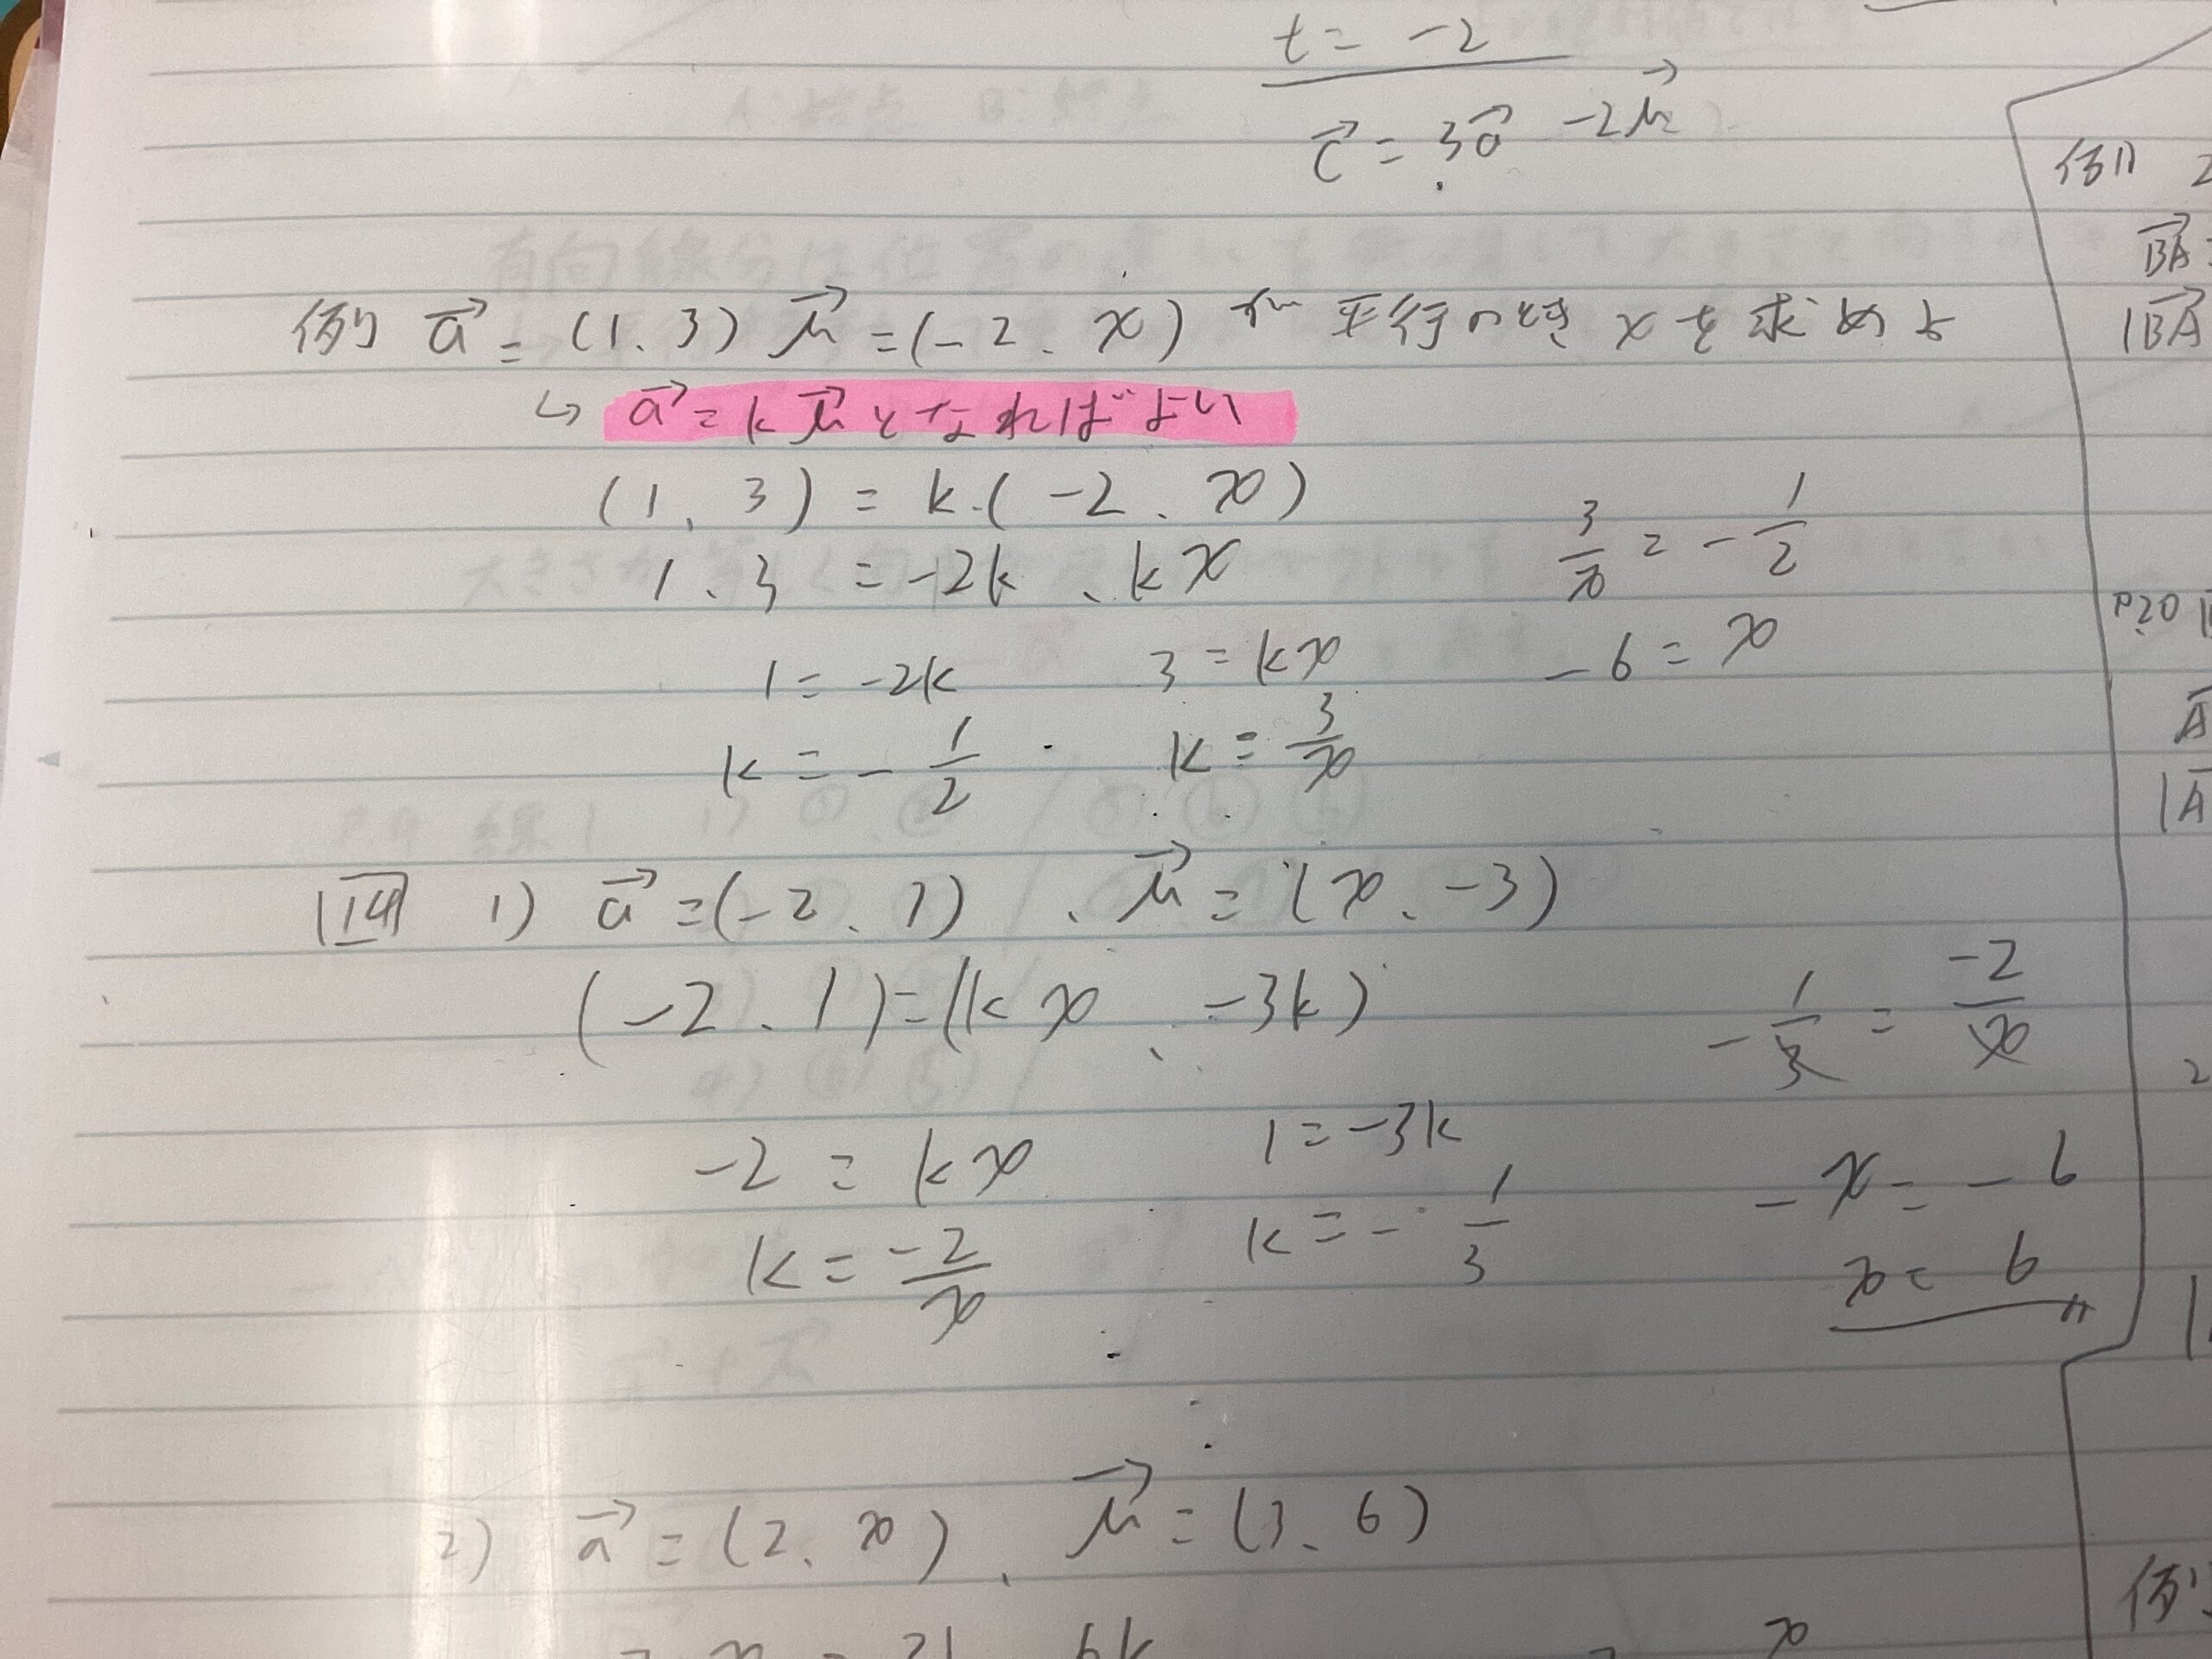 t = -2
c⃗ = 3a⃗ -2b⃗
例) a⃗ = (1、3) b⃗ = (-2、x) が平行の時 xを求めよ
↳ a⃗ = k b⃗ となればよい
(1、3) = k・(-2、x)
1、3 = -2k、kx
1 = -2k 3 = kx
k = -1/2 k = 3/x
3/x = -1/2
-6 = x
14 1) a⃗ = (-2、1)、b⃗ = (x、-3)
(-2、1) = (kx、-3k)
-2 = kx 1 = -3k
k = -2/x k = -1/3
-1/3 = -2/x
-x = -6
x = 6
2) a⃗ = (2、x)、b⃗ = (3、6)
例1)
BA⃗
|BA⃗
P20